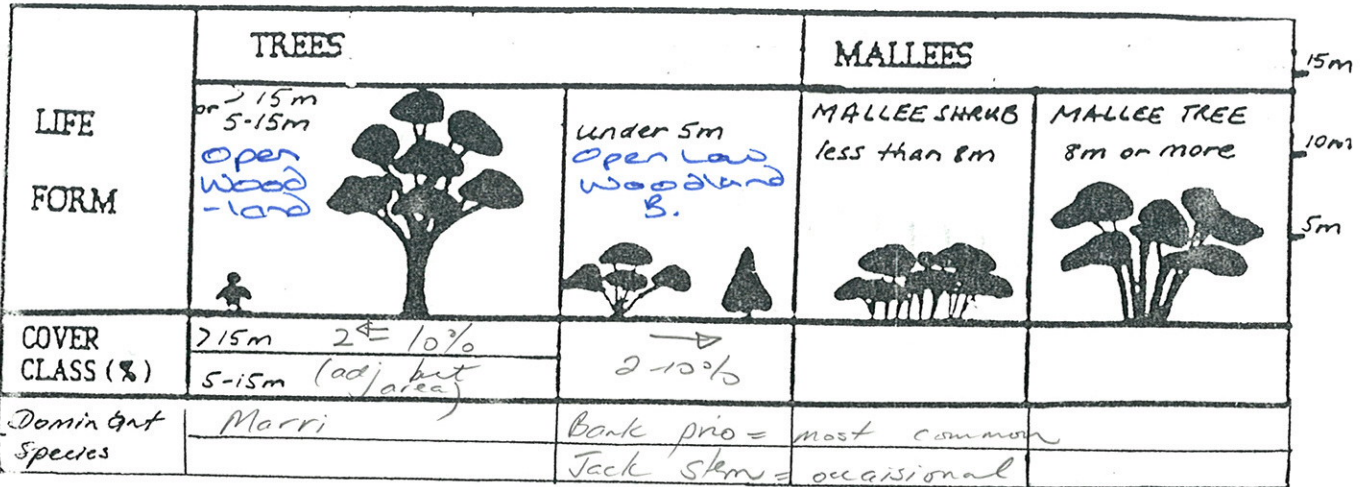 TREES
MALLEES
15m
LIFE
FORM
or > 15m
5-15m
Open
Wood
-land
under 5m
Open Low
Woodland
B.
MALLEE SHRUB
less than 8m
MALLEE TREE
8m or more
10m
5m
COVER
CLASS (%)
>15m
10%
5-15m
(adj but
area)
2-10%
Dominant
Species
Marri
Bank prio = most common
Jack stern = occaisional